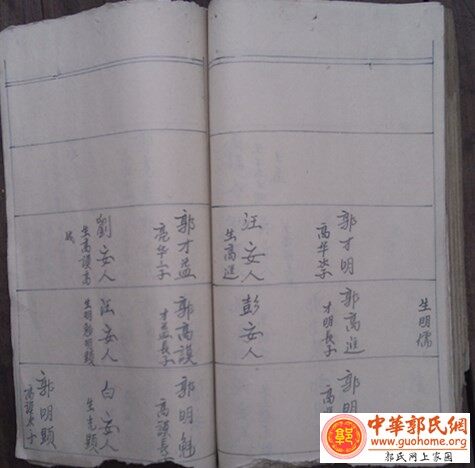 生明儒
郭才明
高华次子
汪安人
生高進
郭才益
高华三子
劉安人
生高謨高
郭高進
才明長子
彭安人
郭高謨
才益長子
汪安人
生明勉明顯
郭明
高
郭明魁
高謨長
白安人
生克顯
郭明顯
高謨次子
中華郭氏網
www.guohome.org
郭氏网上家园